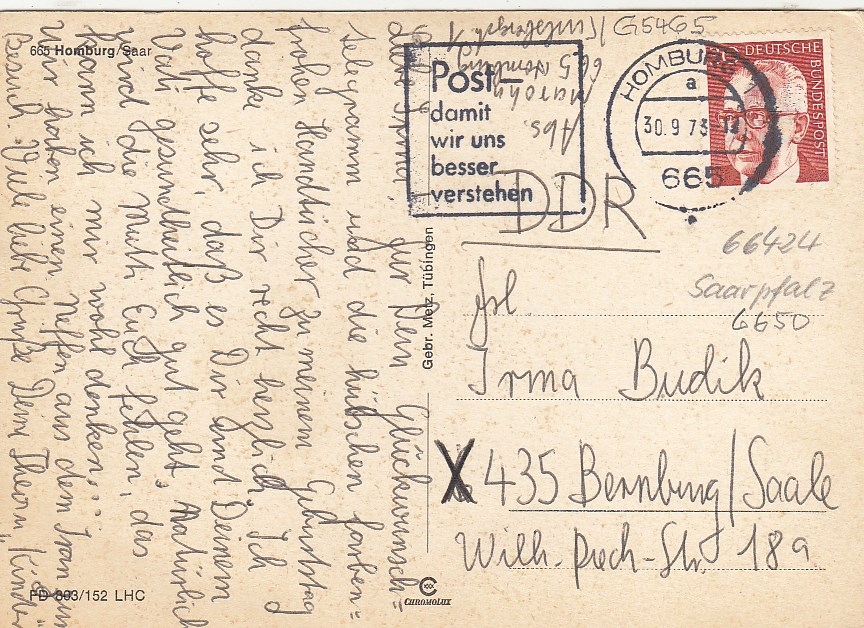 665 Homburg/Saar
Liebe Irma! Für Dein Glückwunsch=
telegramm und die hübschen farben=
frohen Handtücher zu meinem Geburtstag
danke ich Dir recht herzlich. Ich
hoffe sehr, daß es Dir und Deinem
Vati gesundheitlich gut geht. Natürlich
wird die Mutti Euch fehlen, das
kann ich mir wohl denken.
Wir haben einen Neffen aus dem Iran zum
Besuch. Viele liebe Grüße Deine
Gebr. Metz, Tübingen
FD 303/152 LHC
CHROMOLUX
Abs.
665 Homburg
G5465
Post–
damit
wir uns
besser
verstehen
HOMBURG 1
a
30.9.73
665
DEUTSCHE
BUNDESPOST
DDR
66424
Saarpfalz
6650
Frl
Irma Budik
X 435 Bernburg/Saale
Wilh.-Pieck-Str. 18a